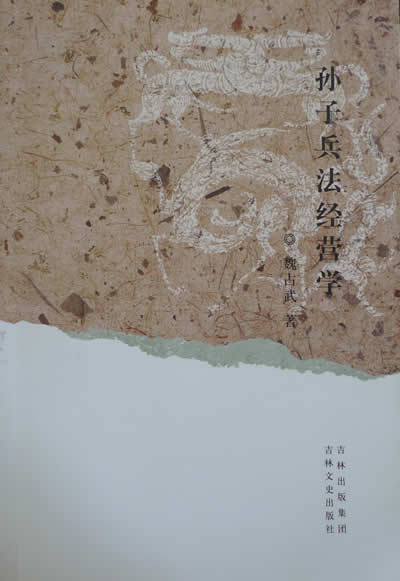 孙子兵法经营学
◎魏占武 著
吉林出版集团
吉林文史出版社